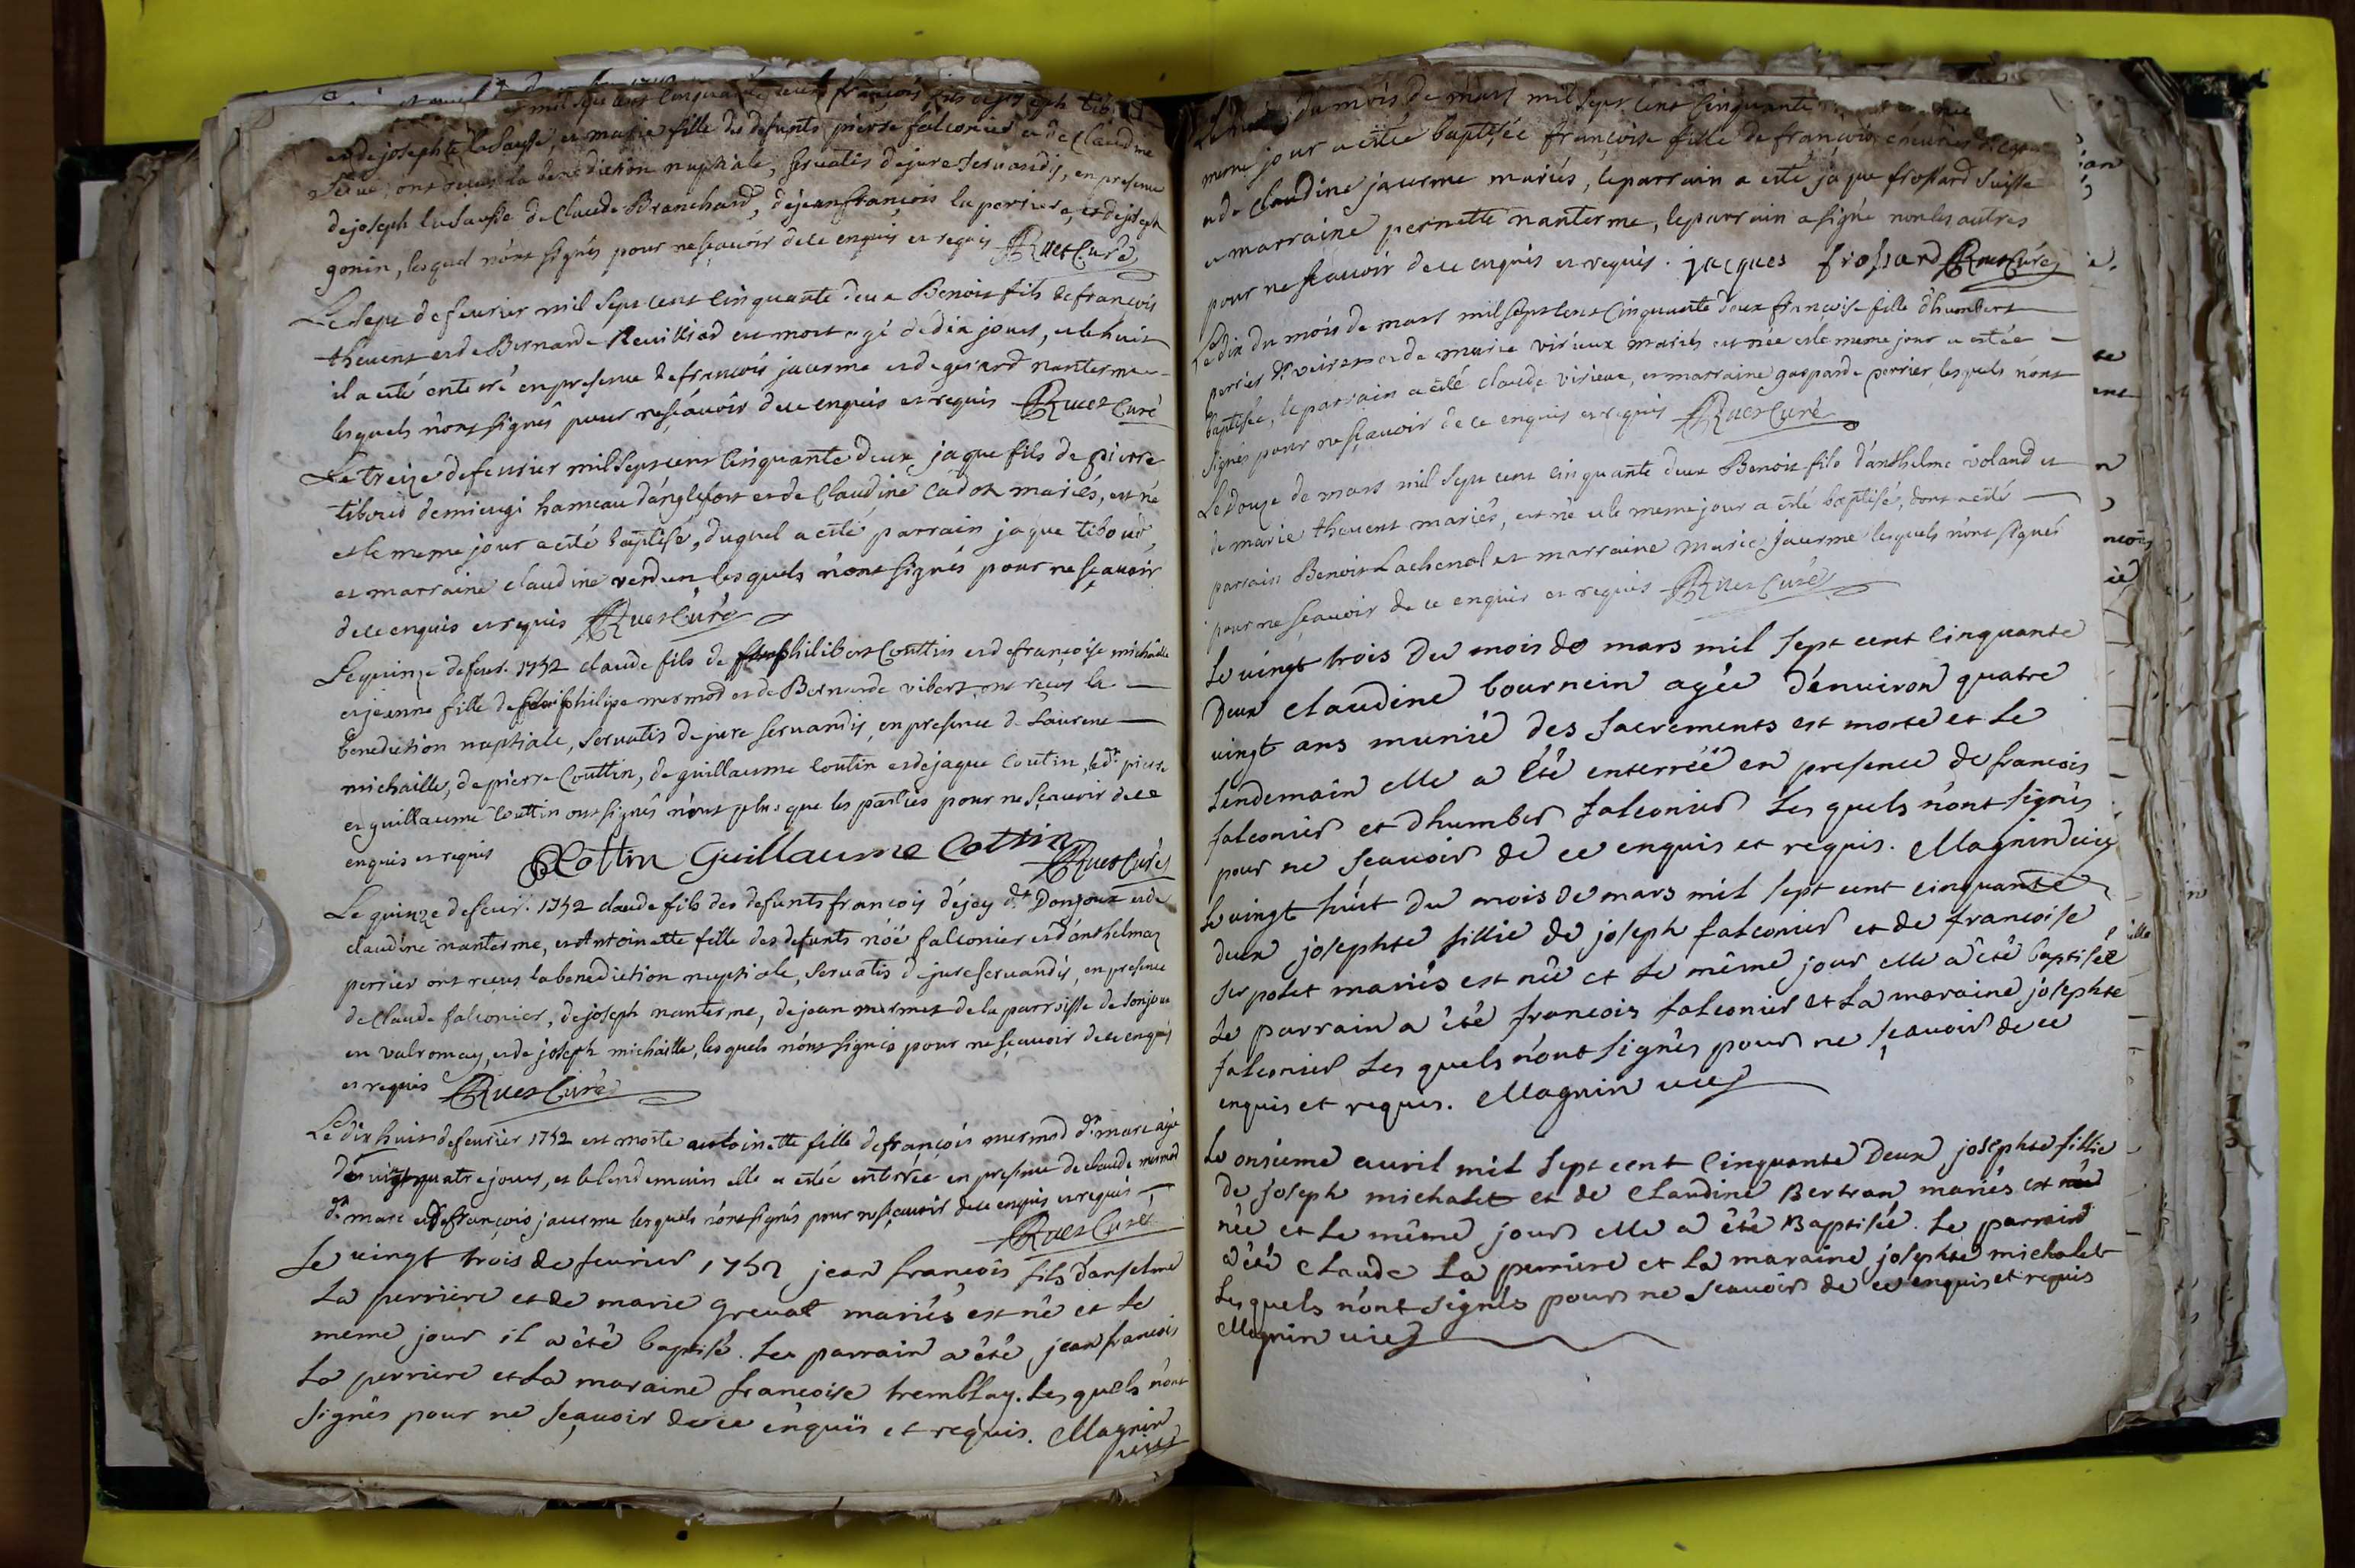 mil sept cent cinquante deux françois fils de joseph tiboud
et de josephte laSausse, et marie fille des defunts pierre falconier et de Claudine
ont receus la benediction nuptiale, servatis de jure servandis, en presence
de joseph laSausse de Claude Branchard, de jean françois la perriere, et de joseph
gonin, lesquel n'ont signés pour ne sçavoir de ce enquis et requis Ruet Curé
Le sept de fevrier mil sept cent cinquante deux Benoit fils de françois
thevent et de Bernarde Revilliod est mort agé de dix jours, et le huit
il a esté enterré en presence de françois jaurme et de gerard nanterme
lesquels n'ont signés pour ne sçavoir de ce enquis et requis Ruet Curé
Le treize de fevrier mil sept cent cinquante deux jaque fils de pierre
tiboud de mieugi hameau d'anglefort et de Claudine Cadot mariés, est né
et le meme jour a esté baptisé, duquel a esté parrain jaque tiboud,
et marraine claudine verdun lesquels n'ont signés pour ne sçavoir
de ce enquis et requis Ruet Curé
Le quinze de fevr. 1752 claude fils de philibert Couttin et de françoise michaille
et jeanne fille de philipe mermod et de Bernarde vibert ont receus la
benediction nuptiale, servatis de jure servandis, en presence de Laurent
michaille, de pierre Couttin, de guillaume Coutin et de jaque Coutin, led.t pierre
et guillaume Couttin ont signés n'ont plus que les parties pour ne sçavoir de ce
enquis et requis Cottin Guillaume Cottin Ruet Curé
Le quinze de fevr. 1752 claude fils des defunts françois déjey dt. Donjoux et de
claudine nanterme, et Antoinette fille des defunts noé falconier et d'anthelmaz
perrier ont receus la benediction nuptiale, servatis de jure servandis, en presence
de Claude falconier, de joseph nanterme, de jean mermet de la parroisse de Sonjeux
en valromay, et de joseph michaille, lesquels n'ont signés pour ne sçavoir de ce enquis
et requis Ruet Curé
Le dix huit de fevrier 1752 est morte antoinette fille de françois mermod dt. marc agée
de vingt quatre jours, et le lendemain elle a estée enterrée en presence de claude mermod
dt. marc et de françois jaurme lesquels n'ont signés pour ne sçavoir de ce enquis et requis
Ruet Curé
Le vingt trois de fevrier 1752 jean françois fils d'anselme
La perriere et de marie grevat mariés est né et le
meme jour il a été baptisé. Le parrain a été jean francois
La perriere et La maraine francoise tremblay. Lesquels n'ont
signés pour ne sçavoir de ce enquis et requis. Magnin
vic
du mois de mars mil sept cent cinquante
meme jour a estée baptisée françoise fille de françois
et de Claudine jaurme mariés, le parrain a esté jaque frossard Suisse
et marraine pernette nanterme, le parrain a signé non les autres
pour ne sçavoir de ce enquis et requis. jacques frossard Ruet Curé
Le dix du mois de mars mil sept cent cinquante deux françoise fille d'humbert
perrier dt. veiret et de marie virieux mariés est née et le meme jour a estée
baptisée, le parrain a esté claude virieux, et marraine gasparde perrier lesquels n'ont
signés pour ne sçavoir de ce enquis et requis Ruet Curé
Le douze de mars mil sept cent cinquante deux Benoit fils d'anthelme voland et
de marie thevent mariés, est né et le meme jour a esté baptisé, dont a esté
parrain Benoit Lachenal et marraine Marie jaurme lesquels n'ont signés
pour ne sçavoir de ce enquis et requis Ruet Curé
Le vingt trois du mois de mars mil sept cent cinquante
Deux claudine bournein agée d'environ quatre
vingt ans munie des sacrements est morte et le
Lendemain elle a été enterréé en presence de francois
falconier et dhumber falconier Lesquels n'ont signés
pour ne sçavoir de ce enquis et requis. Magnin vic
Le vingt huit du mois de mars mil sept cent cinquante
deux josephte fillie de joseph falconier et de francoise
serpolet mariés est née et le même jour elle a été baptisée
Le parrain a été francois falconier et La maraine josephte
falconier Lesquels n'ont signés pour ne sçavoir de ce
enquis et requis. Magnin vic
Le onsieme avril mil sept cent cinquante Deux josephte fillie
de joseph michalet et de Claudine Bertran mariés est
née et Le même jour elle a été Baptisée. Le parrain
a été Claude La perriere et La maraine josephte michalet
Lesquels n'ont signés pour ne sçavoir de ce enquis et requis
Magnin vic